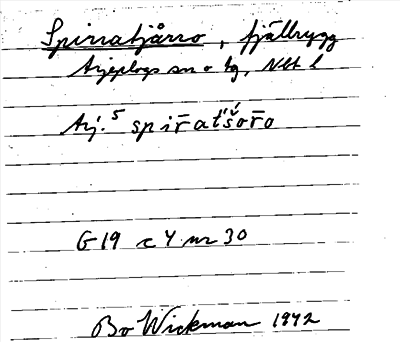 Spirratjårro, fjällrygg
Arjeplogs sn o tg, Nbt l
Arj.⁵ spir̄atʹšʹor̄o
G19 c 4 nr 30
Bo Wickman 1942